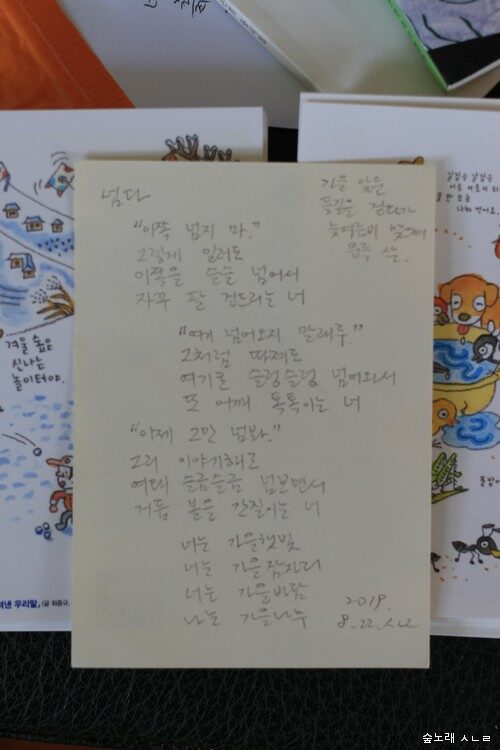 넘다
가을 앞둔
들길을 걷다가
늦여름비 맞으며
문득 씀.
"이쪽 넘지 마."
그렇게 일러도
이쪽을 슬슬 넘어서
자꾸 팔 건드리는 너
"여기 넘어오지 말래두."
그처럼 따져도
여기로 슬렁슬렁 넘어와서
또 어깨 톡톡이는 너
"이제 그만 넘봐."
그리 이야기해도
여태 슬금슬금 넘보면서
거듭 볼을 간질이는 너
너는 가을햇빛
너는 가을잠자리
너는 가을바람
나는 가을나무
2019.
8.22. ㅅㄴㄹ
겨울 숲은
신나는
놀이터야.
려낸 우리말」 (글 최종규,
숲노래 ㅅㄴㄹ